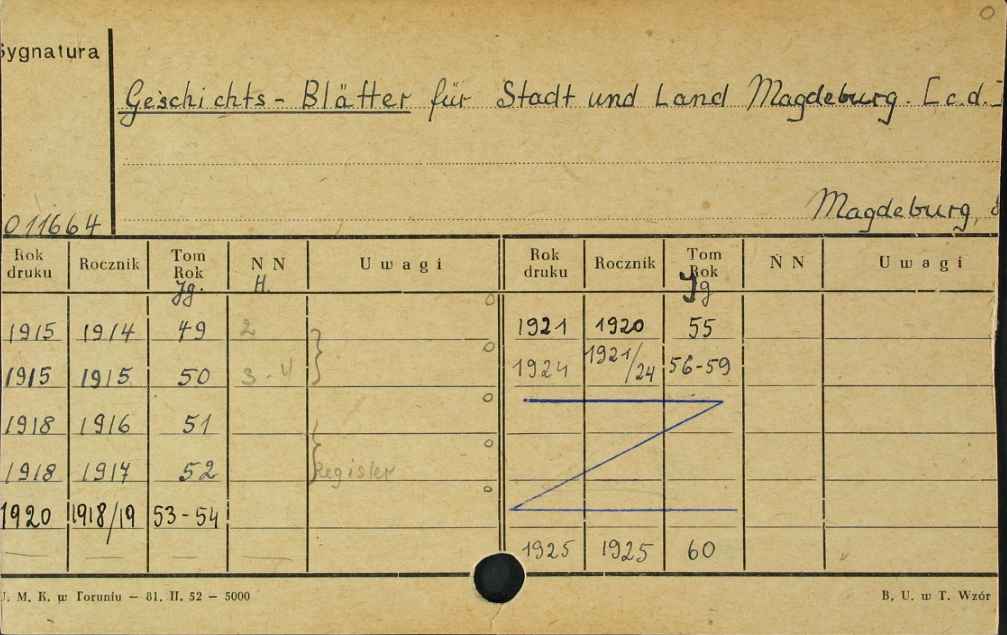 Sygnatura
Geschichts - Blätter für Stadt und Land Magdeburg. [c.d.]
Magdeburg, 8
011664
Rok druku Rocznik Tom Rok Jg. N N H. U w a g i Rok druku Rocznik Tom Rok Jg N N U w a g i
1915 1914 49 2 1921 1920 55
1915 1915 50 3-4 1924 1921/24 56-59
1918 1916 51
1918 1917 52 Register
1920 1918/19 53-54
1925 1925 60
U. M. K. w Toruniu — 81. II. 52 — 5000 B. U. w T. Wzór